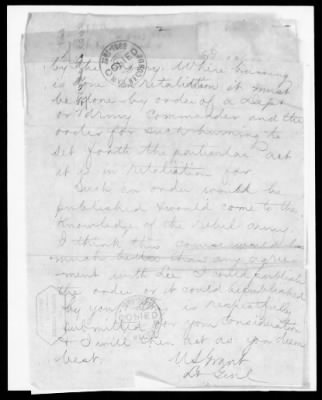 2
by the enemy. Where burning
is done in retaliation it must
be done by order of a Dept
or Army Commander and the
order for such burning to
set forth the particular act
it is in retaliation for.
Such an order would be
published & would come to the
knowledge of the rebel Army.
I think this course would be
much better than any agree-
ment with Lee. I could publish
the order or it could be published
by you. This is respectfully
submitted for your consideration
& I will then act as you deem
best.
U S Grant
Lt Genl
COPIED